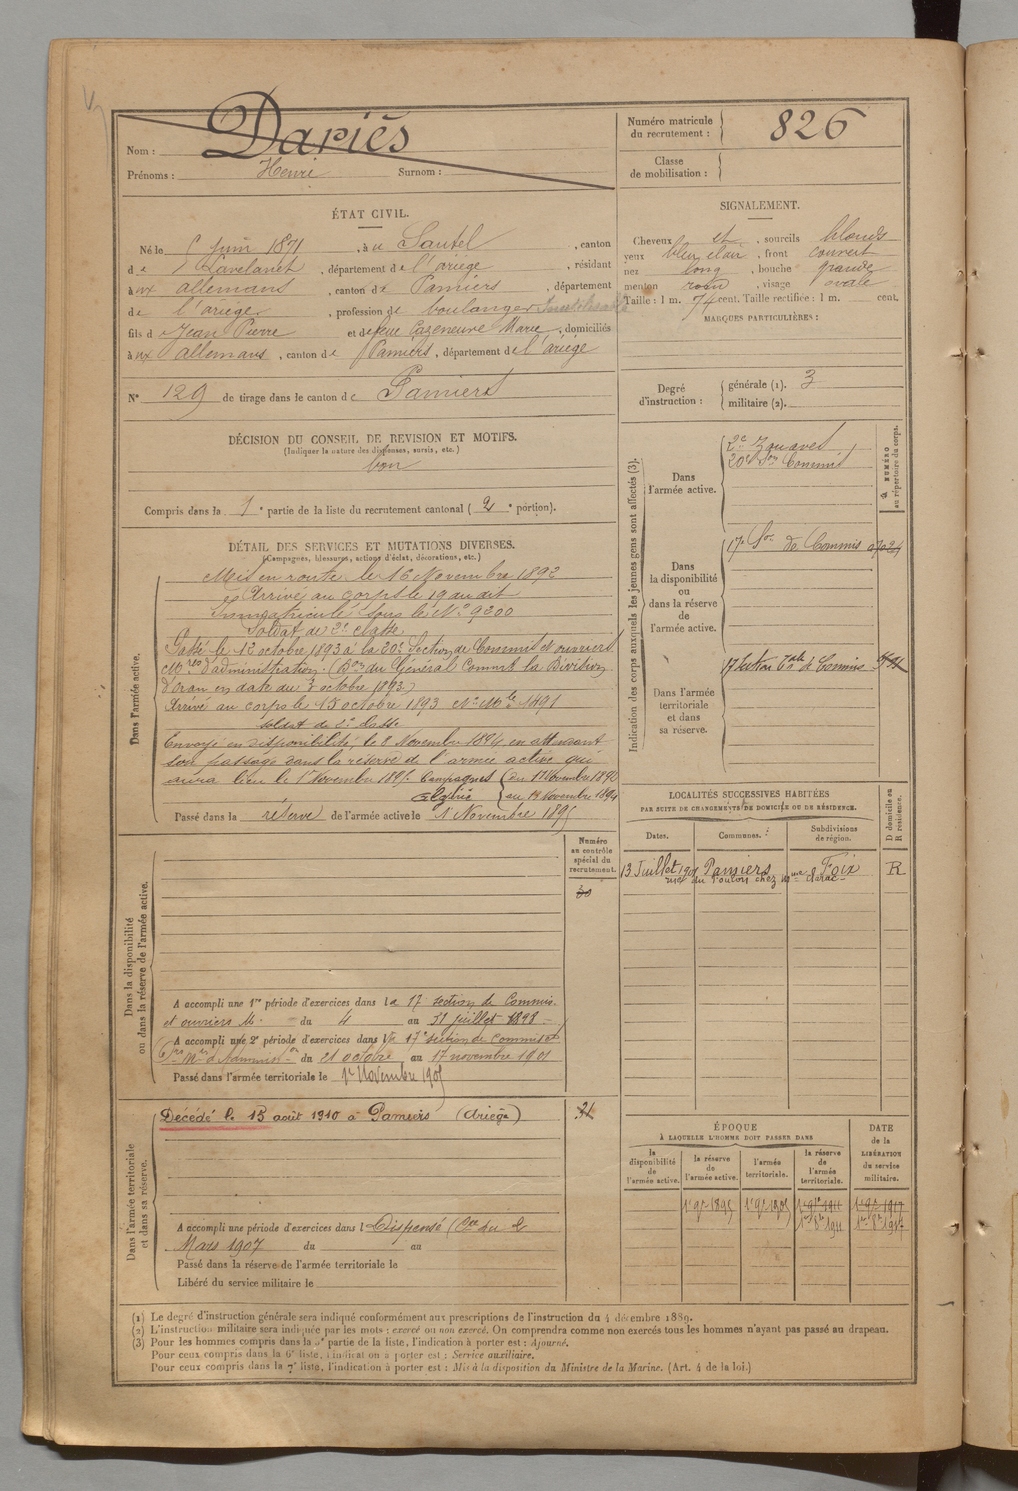 Nom : Dariès
Prénoms : Henri Surnom :
Numéro matricule du recrutement : 826
Classe de mobilisation :
ÉTAT CIVIL.
Né le Juin 1871, à u Sautel, canton
d e Lavelanet, département de l'ariège, résidant
à ux allemans, canton de Pamiers, département
de l'ariège, profession de boulanger
fils de Jean Pierre et de feue Cazeneuve Marie, domiciliés
à ux allemans, canton de Pamiers, département de l'ariège
N° 129 de tirage dans le canton de Pamiers
SIGNALEMENT.
Cheveux et, sourcils blonds
yeux bleu clair, front couvert
nez long, bouche grande
menton rond, visage ovale
Taille : 1 m. 74 cent. Taille rectifiée : 1 m. cent.
MARQUES PARTICULIÈRES :
Degré d'instruction :
générale (1). 3
militaire (2).
DÉCISION DU CONSEIL DE REVISION ET MOTIFS.
(Indiquer la nature des dispenses, sursis, etc.)
bon
Compris dans la 1e partie de la liste du recrutement cantonal (2e portion).
DÉTAIL DES SERVICES ET MUTATIONS DIVERSES.
(Campagnes, blessures, actions d'éclat, décorations, etc.)
Dans l'armée active.
Mis en route le 16 Novembre 1892
Arrivé au corps le 19 au dit
Immatriculé sous le N° 9200
Soldat de 2e classe
Passé le 12 octobre 1893 à la 20e Section de Commis et ouvriers
mres d'administration. (Don du Général Commt la Division
d'Oran en date du 3 octobre 1893)
Arrivé au corps le 15 octobre 1893 N° Mle 1491
soldat de 2e classe
Envoyé en disponibilité, le 8 Novembre 1894, en attendant
son passage dans la réserve de l'armée active qui
aura lieu le 1er Novembre 1895. Campagnes du 17 Novembre 1892
Algérie au 19 Novembre 1894
Passé dans la réserve de l'armée active le 1 Novembre 1895
Indication des corps auxquels les jeunes gens sont affectés (3).
NUMÉRO au répertoire du corps.
Dans l'armée active.
2e Zouaves
20e Son Commis
Dans la disponibilité ou dans la réserve de l'armée active.
17e Son de Commis
Dans l'armée territoriale et dans sa réserve.
17 Section Tale de Commis
LOCALITÉS SUCCESSIVES HABITÉES
PAR SUITE DE CHANGEMENTS DE DOMICILE OU DE RÉSIDENCE.
Dates. Communes. Subdivisions de région. D domicile ou R résidence.
13 Juillet 1901 Pamiers Foix R
rue du Foulon chez Mme Clarac
Dans la disponibilité ou dans la réserve de l'armée active.
Numéro au contrôle spécial du recrutement.
30
A accompli une 1re période d'exercices dans la 17 section de Commis
et ouvriers M. du 4 au 31 juillet 1898
A accompli une 2e période d'exercices dans la 17e section de commis et
Ors Mres d'Administ.on du 21 octobre au 17 novembre 1901
Passé dans l'armée territoriale le 1er Novembre 1905
Dans l'armée territoriale et dans sa réserve.
Décédé le 15 août 1910 à Pamiers (Ariège)
31
A accompli une période d'exercices dans l Dispensé (Cre du 2
Mars 1907 du au
Passé dans la réserve de l'armée territoriale le
Libéré du service militaire le
ÉPOQUE
À LAQUELLE L'HOMME DOIT PASSER DANS
DATE de la LIBÉRATION du service militaire.
la disponibilité de l'armée active. la réserve de l'armée active. l'armée territoriale. la réserve de l'armée territoriale.
1er 9bre 1895 1er 9bre 1905 1er 9bre 1911 1er 9bre 1917
1er 8bre 1911 1er 8bre 1917
(1) Le degré d'instruction générale sera indiqué conformément aux prescriptions de l'instruction du 4 décembre 1889.
(2) L'instruction militaire sera indiquée par les mots : exercé ou non exercé. On comprendra comme non exercés tous les hommes n'ayant pas passé au drapeau.
(3) Pour les hommes compris dans la 5e partie de la liste, l'indication à porter est : Ajourné.
Pour ceux compris dans la 6e liste, l'indication à porter est : Service auxiliaire.
Pour ceux compris dans la 7e liste, l'indication à porter est : Mis à la disposition du Ministre de la Marine. (Art. 4 de la loi.)